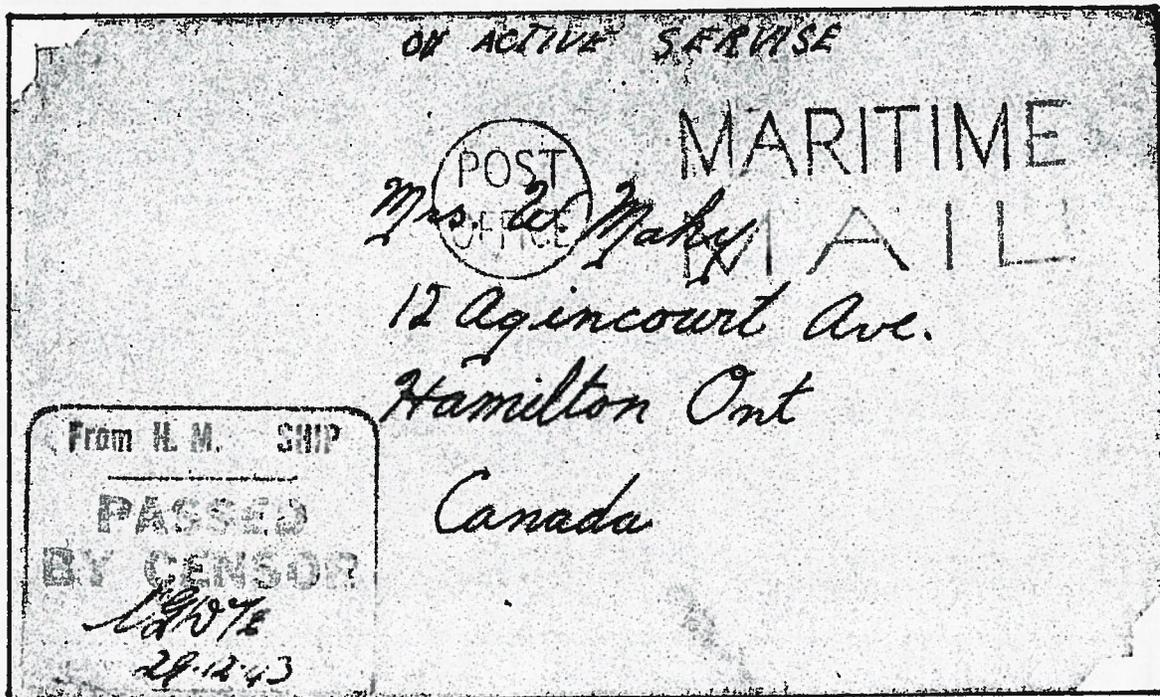 ON ACTIVE SERVISE
POST OFFICE
MARITIME
MAIL
Mrs. W. Maky
12 Agincourt Ave.
Hamilton Ont
Canada
From H. M. SHIP
PASSED
BY CENSOR
29.12.43